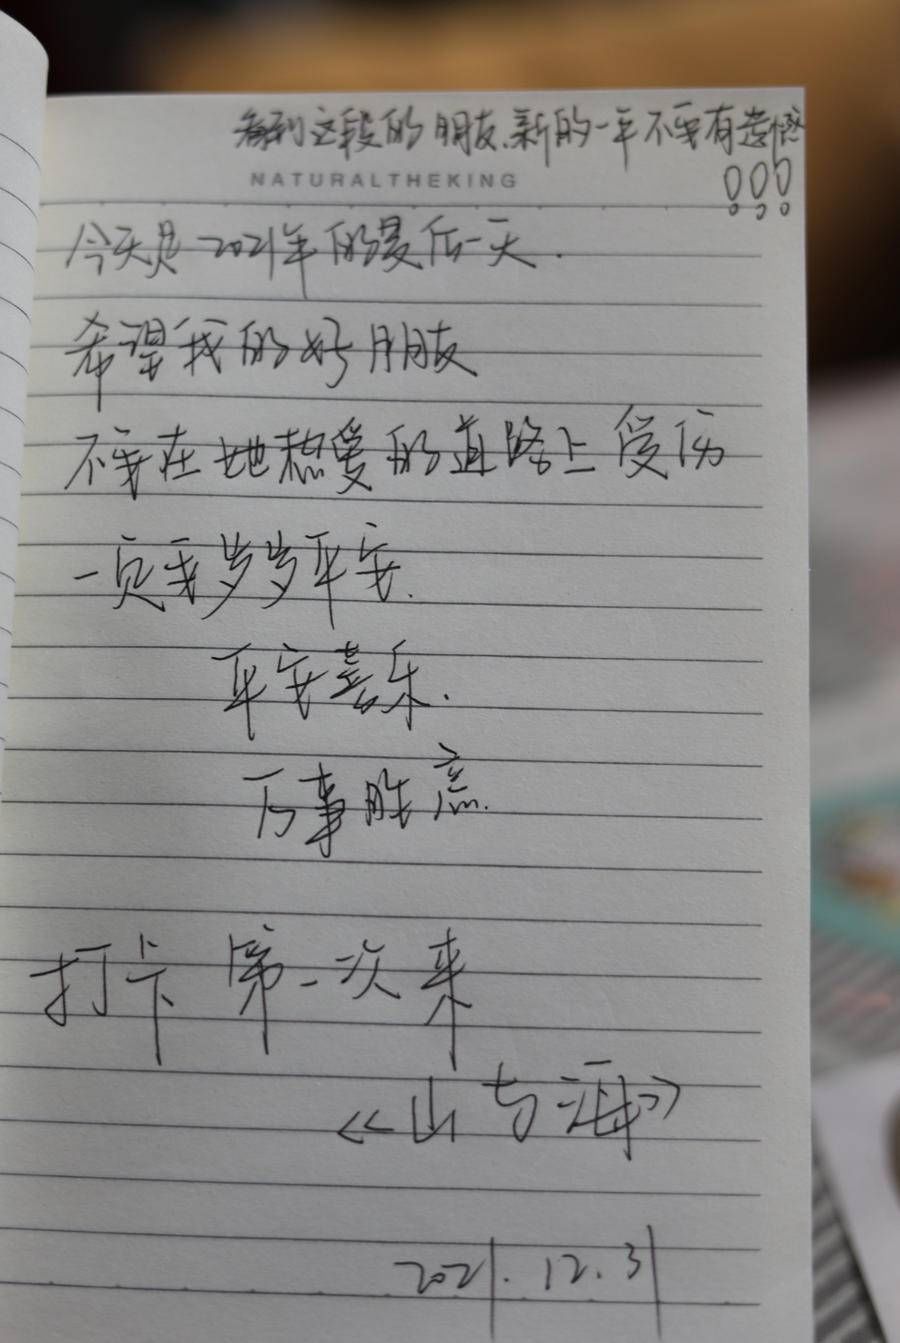 看到这段的朋友.新的一年不要有遗憾!!!
NATURALTHEKING
今天是2021年的最后一天.
希望我的好朋友
不要在她热爱的道路上受伤
一定要岁岁平安.
平安喜乐.
万事胜意.
打卡第一次来
《山与海》
2021.12.31